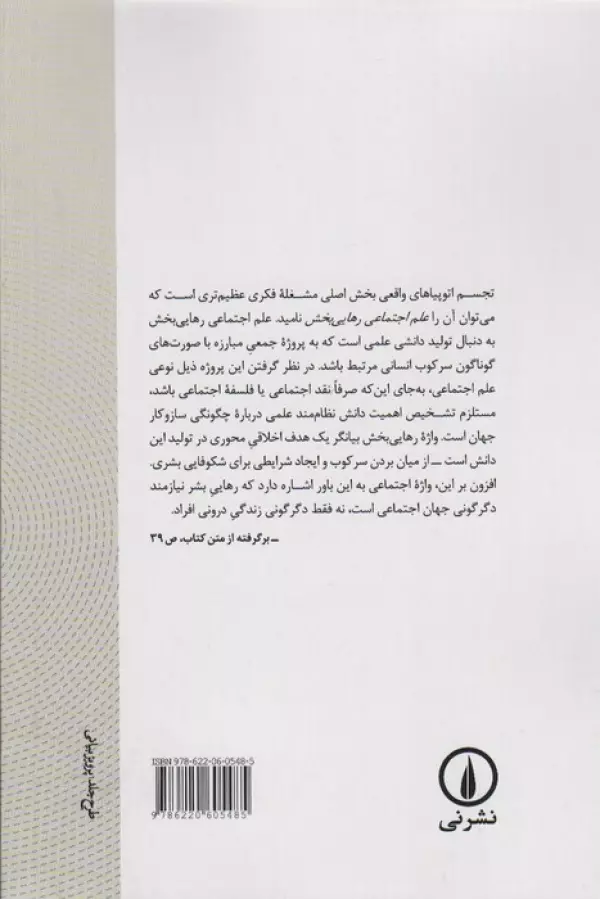 تجسم اتوپیاهای واقعی بخش اصلی مشغلهٔ فکری عظیم‌تری است که
می‌توان آن را علم اجتماعی رهایی‌بخش نامید. علم اجتماعی رهایی‌بخش
به دنبال تولید دانشی علمی است که به پروژهٔ جمعیِ مبارزه با صورت‌های
گوناگون سرکوب انسانی مرتبط باشد. در نظر گرفتن این پروژه ذیل نوعی
علم اجتماعی، به‌جای این‌که صرفاً نقد اجتماعی یا فلسفهٔ اجتماعی باشد،
مستلزم تشخیص اهمیت دانش نظام‌مند علمی دربارهٔ چگونگی سازوکار
جهان است. واژهٔ رهایی‌بخش بیانگر یک هدف اخلاقیِ محوری در تولید این
دانش است ــ از میان بردن سرکوب و ایجاد شرایطی برای شکوفایی بشری.
افزون بر این، واژهٔ اجتماعی به این باور اشاره دارد که رهاییِ بشر نیازمند
دگرگونی جهان اجتماعی است، نه فقط دگرگونی زندگیِ درونی افراد.
ــ برگرفته از متن کتاب، ص ۳۹
ISBN 978-622-06-0548-5
9 786220 605485
نشرنی
طرح جلد: پرویز بیانی